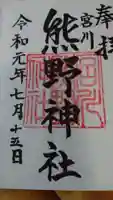 奉拝
宮川
熊野神社
令和元年七月十五日